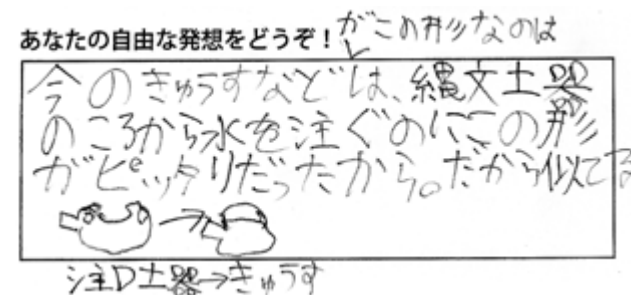 あなたの自由な発想をどうぞ！
がこの形なのは
今のきゅうすなどは、縄文土器
のころから水を注ぐのにこの形
がピッタリだったから。だから似てる
注口土器→きゅうす